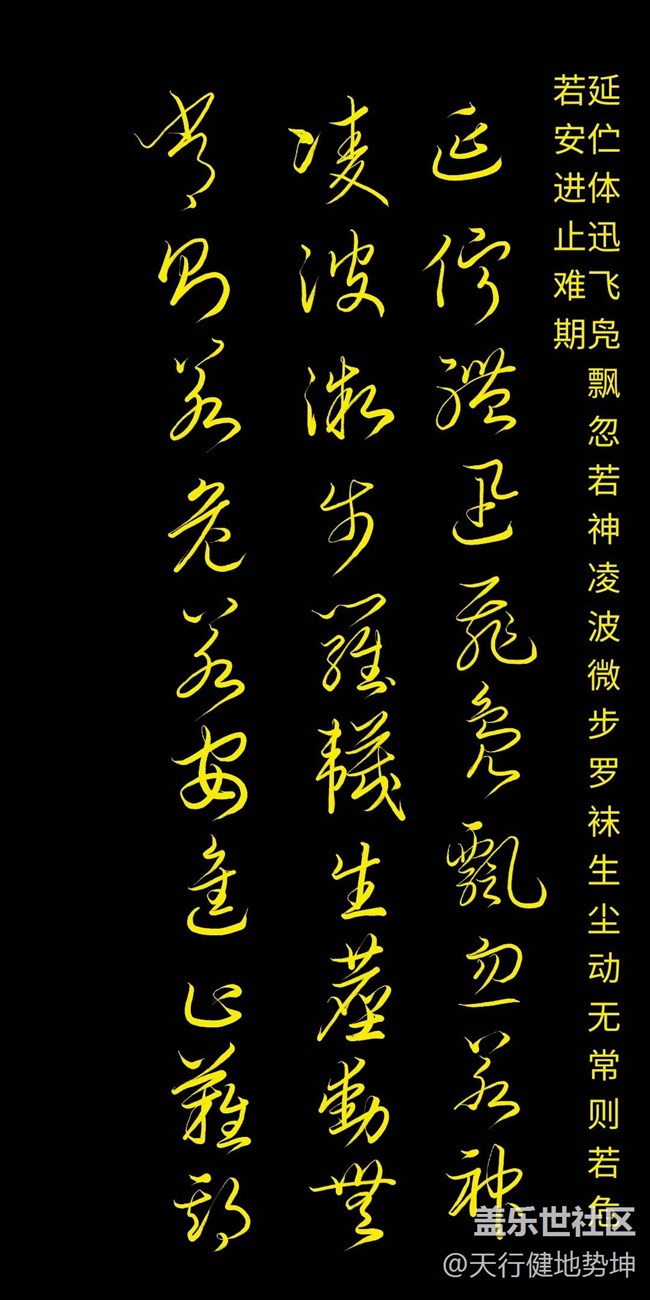 延伫体迅飞凫飘忽若神凌波微步罗袜生尘动无常则若危
若安进止难期
延佇體迅飛鳧飄忽若神
凌波微步羅韤生塵動無
常則若危若安進止難期
盖乐世社区
@天行健地势坤